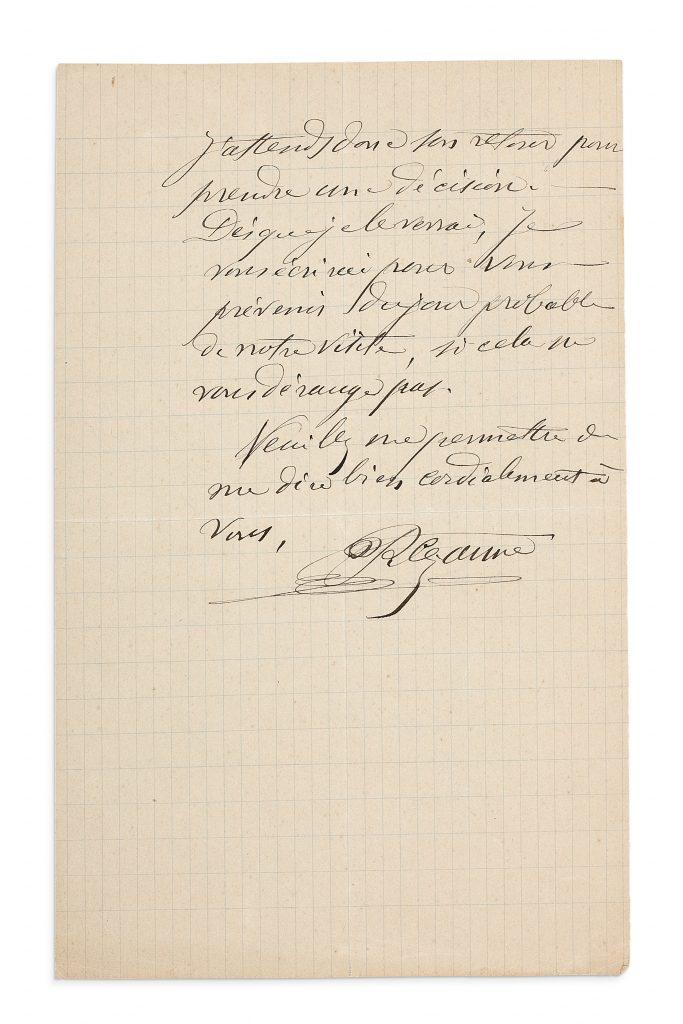 J'attends donc son retour pour
prendre une décision. —
Dès que je le verrai, je
vous écrirai pour vous —
prévenir du jour probable
de notre visite, si cela ne
vous dérange pas.
Veuillez me permettre de
me dire bien cordialement à
vous,
P Cezanne